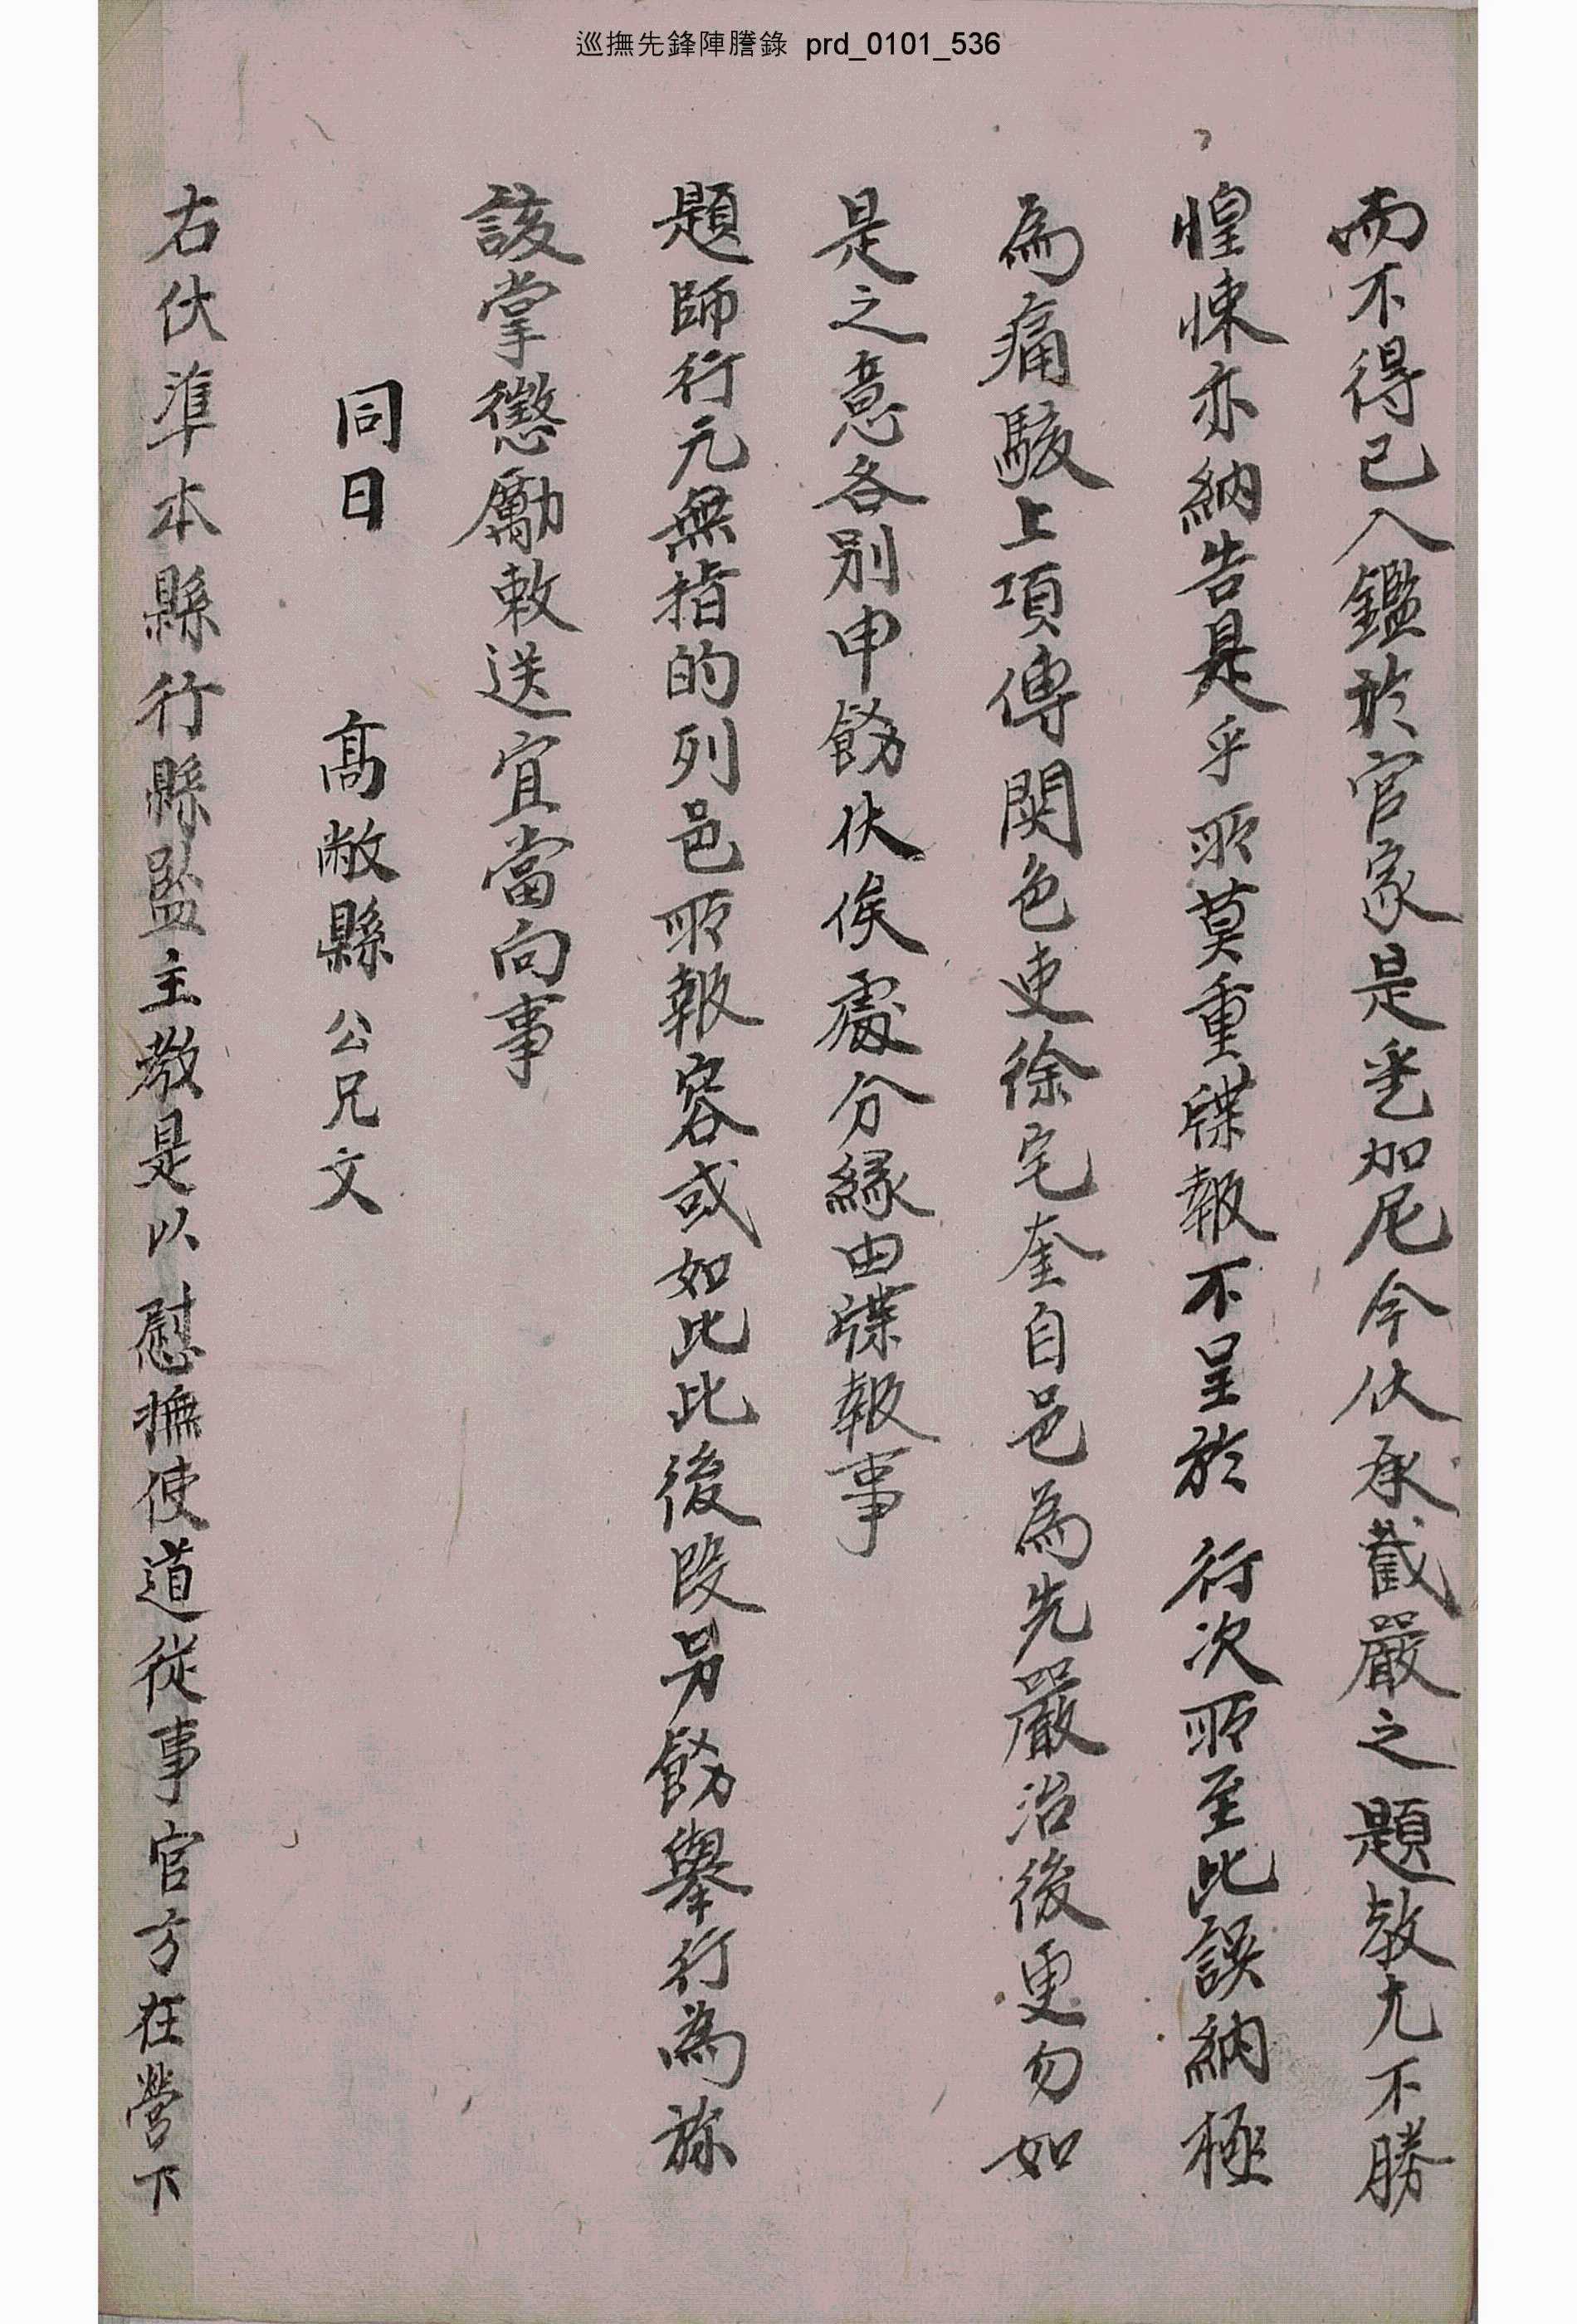 巡撫先鋒陣謄錄 prd_0101_536
而不得已入鑑於官家是乎加尼今伏承截嚴之題教尤不勝
惶悚亦納告是乎所莫重牒報不呈於 行次所至此誤納極
為痛駭上項傳関色吏徐宅奎自邑為先嚴治後更勿如
是之意各別申飭伏俟處分緣由牒報事
題師行元無指的列邑所報容或如此此後段另飭擧行為旀
該掌懲勵敕送宜當向事
同日 高敞縣公兄文
右伏準本縣行縣監主教是以慰撫使道從事官方在營下